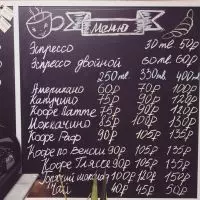 Меню
Эспрессо 30 мл. 50р
Эспрессо двойной 60 мл. 60р
250 мл. 330 мл. 400 мл
Американо 60р 70р 100р
Капучино 75р 90р 120р
Кофе Латте 75р 90р
Моккачино 85р 100р 130р
Кофе Раф 90р 105р 135р
Кофе по Венски 90р 105р 135р
Кофе Гляссе 90р 105р 135р
Горячий шоколад 100р 120р 150р
Чай 40р 45р 50р